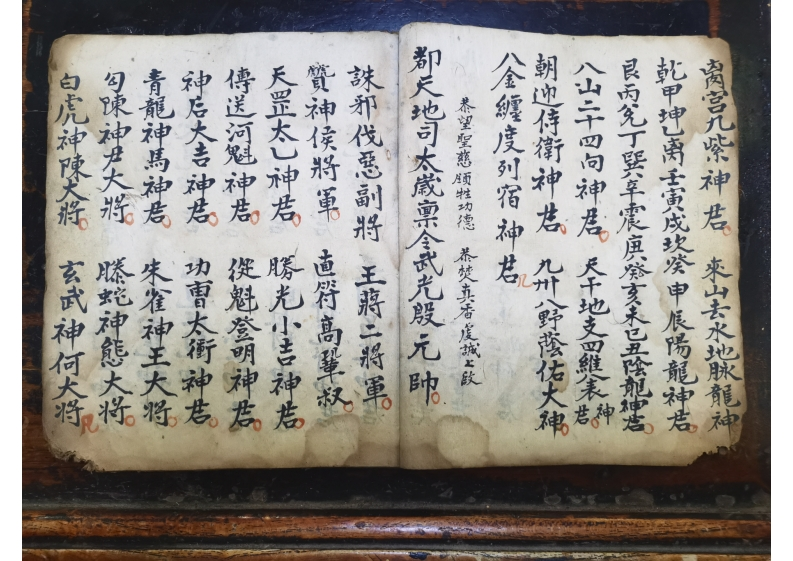 离宫九紫神君 來山去水地脉龍神
乾甲坤乙离壬寅戌坎癸申辰陽龍神君
艮丙兌丁巽辛震庚癸亥未巳丑陰龍神君
八山二十四向神君 天干地支四維八表神君
朝迎侍衛神君 九州八野蔭佑大神
八金纏度列宿神君
恭望聖慈頒牲功德 恭焚真香虔誠上啟
都天地司太歲禀令武光殷元帥
誅邪伐惡副將 王蔣二將軍
贊神侯將軍 直符高鞏叔
天罡太乙神君 勝光小吉神君
傳送河魁神君 從魁登明神君
神后大吉神君 功曹太衝神君
青龍神馬神君 朱雀神王大將
勾陳神尹大將 螣蛇神態大將
白虎神陳大將 玄武神何大將